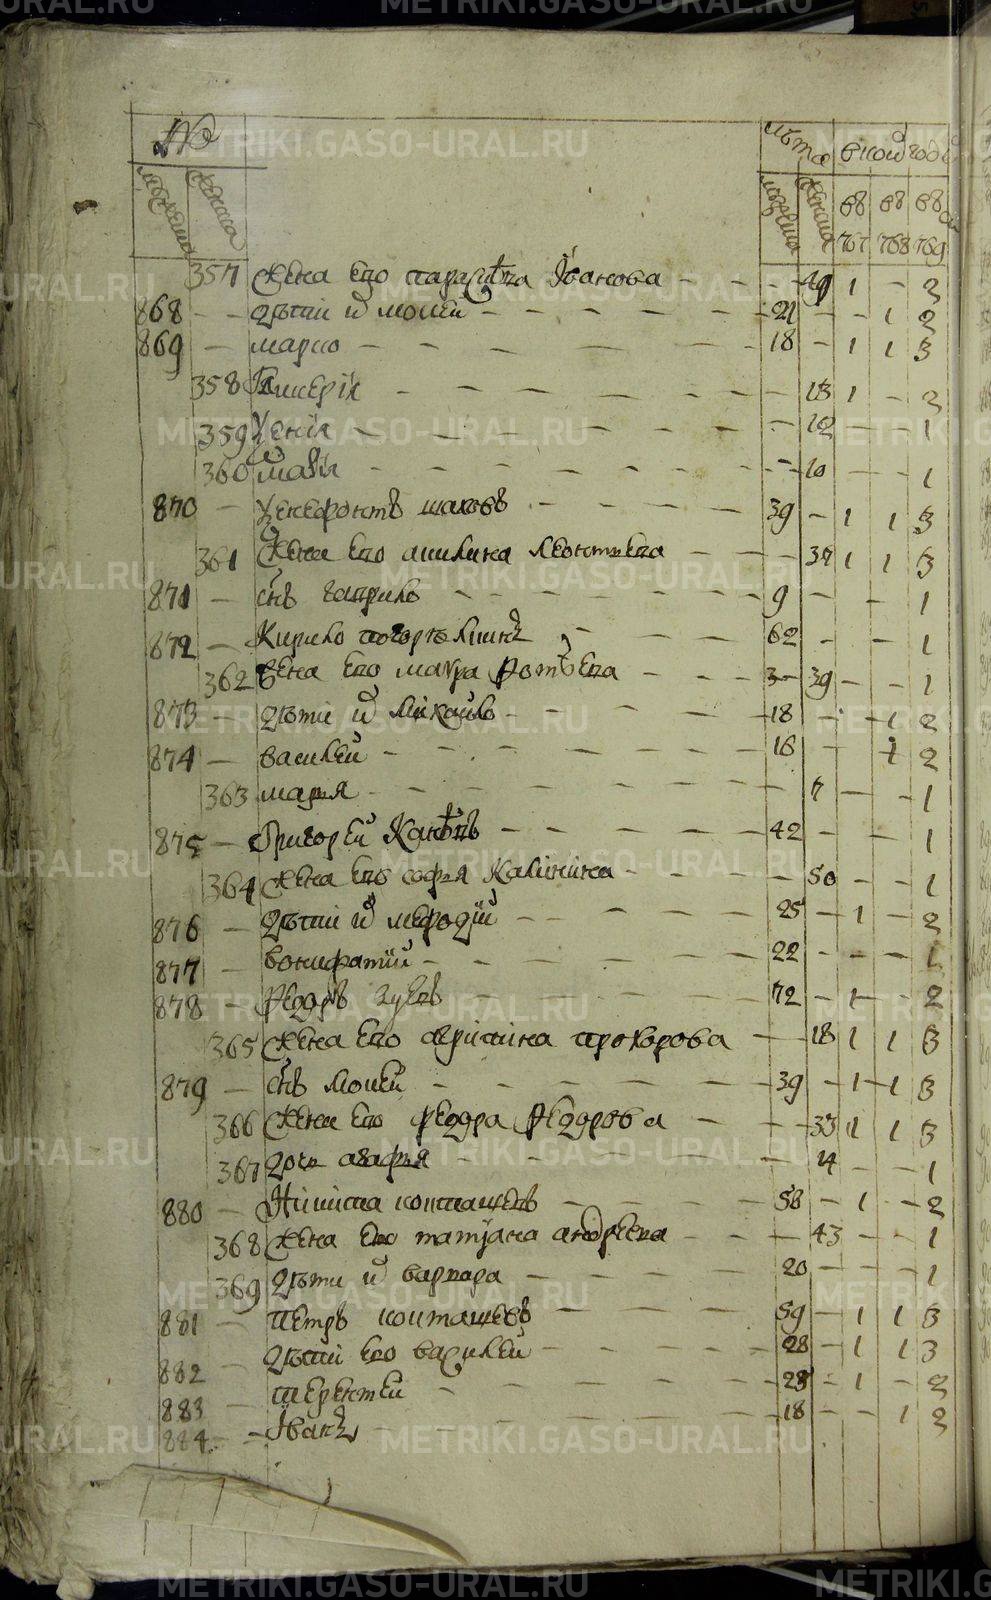 № лѣта в коем годе
мужеска женска мужеска женска въ 767 въ 768 въ 769
357 жена его параскѣва Iванова 49 1 - 2
868 дѣти и моисей 21 - 1 2
869 марко 18 1 1 3
358 13 1 - 2
359 ѯенія 12 - - 1
360 10 - - 1
870 ѯенофонтъ 39 1 1 3
361 жена его акилина леонтьева 37 1 1 3
871 снъ гаврило 9 - - 1
872 Кирило погорѣлших 62 - - 1
362 жена его мавра фотѣева 39 - - 1
873 дѣти и михаило 18 - 1 2
874 василей 16 - 1 2
363 марья 7 - - 1
875 григорей 42 - - 1
364 жена его софья калинина 50 - - 1
876 дѣти и мефодій 25 1 - 2
877 вонифатій 22 - - 1
878 Федоръ зуевъ 72 1 - 2
365 жена его агрипина прохорова 18 1 1 3
879 снъ моисей 39 1 1 3
366 жена его федора Федорова 33 1 1 3
367 дочь агафья 14 - - 1
880 Никита конташевъ 58 1 - 2
368 жена его татіана андреева 43 - - 1
369 дѣти и варвара 20 - - 1
881 петръ конташевъ 59 1 1 3
882 дѣти его василей 28 1 1 3
883 терентей 23 1 - 2
884 Iванъ 18 - 1 2
METRIKI.GASO-URAL.RU